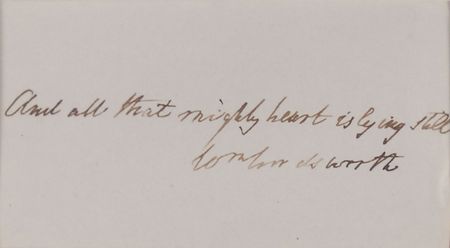 And all that mighty heart is lying still
Wm Wordsworth